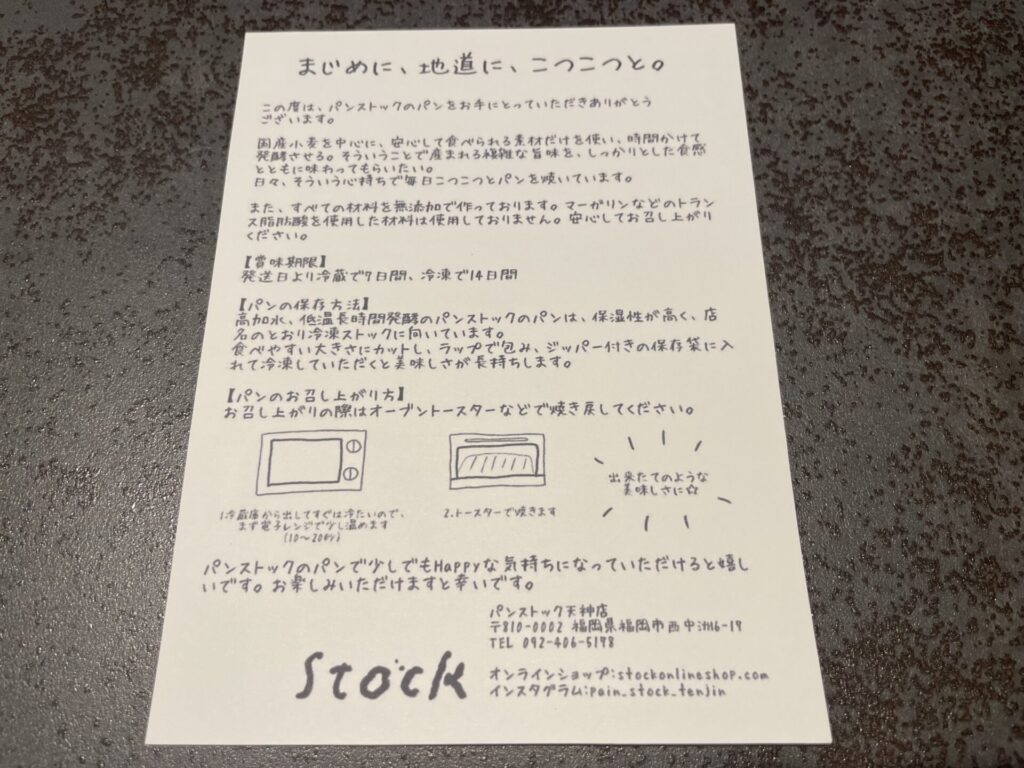 まじめに、地道に、こつこつと。
この度は、パンストックのパンをお手にとっていただきありがとう
ございます。
国産小麦を中心に、安心して食べられる素材だけを使い、時間かけて
発酵させる。そういうことで産まれる複雑な旨味を、しっかりとした食感
とともに味わってもらいたい。
日々、そういう心持ちで毎日こつこつとパンを焼いています。
また、すべての材料を無添加で作っております。マーガリンなどのトラン
ス脂肪酸を使用した材料は使用しておりません。安心してお召し上がり
ください。
【賞味期限】
発送日より冷蔵で7日間、冷凍で14日間
【パンの保存方法】
高加水、低温長時間発酵のパンストックのパンは、保湿性が高く、店
名のとおり冷凍ストックに向いています。
食べやすい大きさにカットし、ラップで包み、ジッパー付きの保存袋に入
れて冷凍していただくと美味しさが長持ちします。
【パンのお召し上がり方】
お召し上がりの際はオーブントースターなどで焼き戻してください。
1.冷蔵庫から出してすぐは冷たいので、
まず電子レンジで少し温めます
(10〜20秒)
2.トースターで焼きます
出来たてのような
美味しさに☆
パンストックのパンで少しでもHappyな気持ちになっていただけると嬉し
いです。お楽しみいただけますと幸いです。
パンストック天神店
〒810-0002 福岡県福岡市西中洲6-17
TEL 092-406-5178
stock
オンラインショップ:stockonlineshop.com
インスタグラム:pain_stock_tenjin